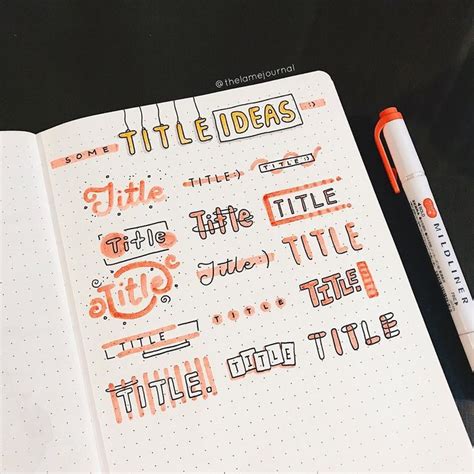 @thelamejournal
SOME TITLE IDEAS :)
Title
TITLE:)
TITLE:)
Title
Title
TITLE
Title
Title:)
TITLE
TITLE
TITLE
TITLE!
TITLE.
TITLE
TITLE
MILDLINER